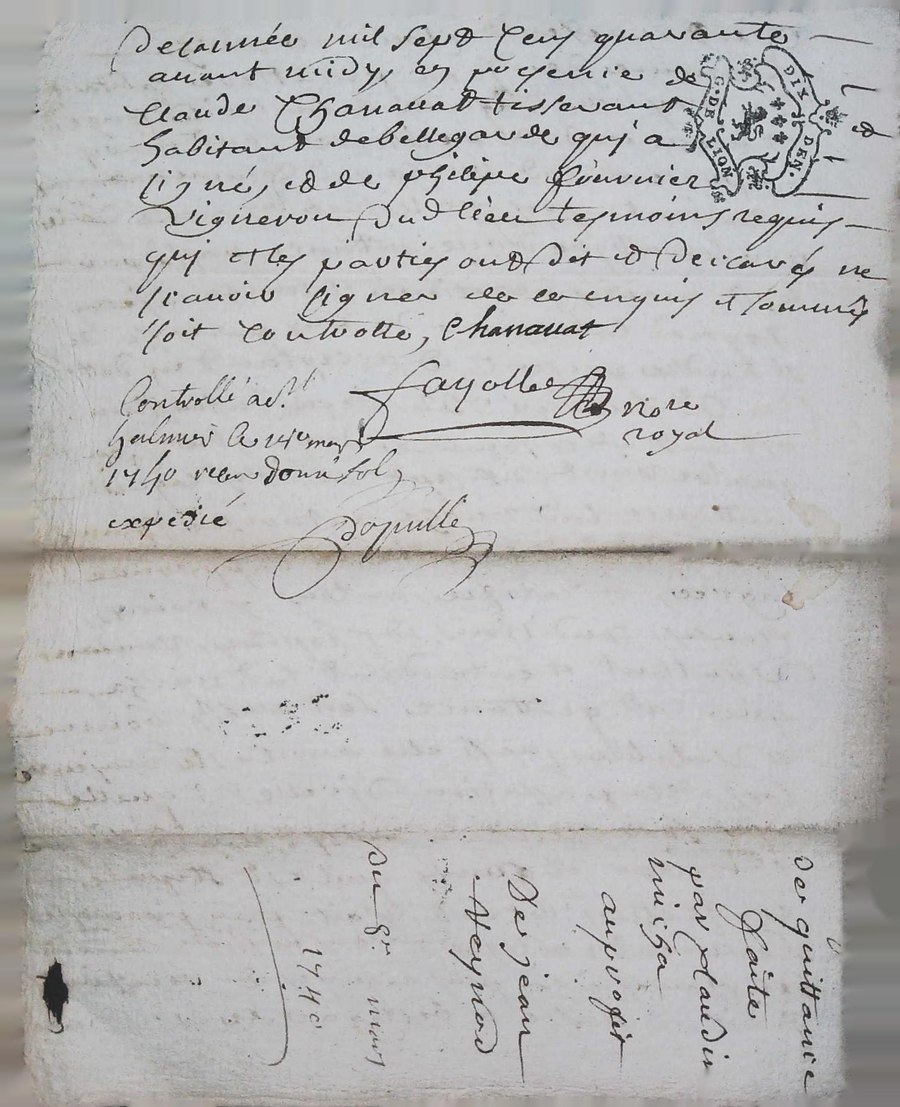 de lannée mil sept Cens quarante
avant midy, en presence de
Claude Chanavat tisserant
habitant de bellegarde qui a
signé, et de philipe fournier
Vigneron dudt lieu tesmoins requis
qui et les parties ont dit et declarés ne
scavoir signer de ce enquis et sommés
soit Controllé, Chanavat
Fayolle nore
royal
Controllé a st
galmier le mars
1740 recu sols
expedié
G. DE LION
DIX DEN.
quittance
faite
par Claudin
micha
au profit
De jean
Neyrod
du 8e mars
1740